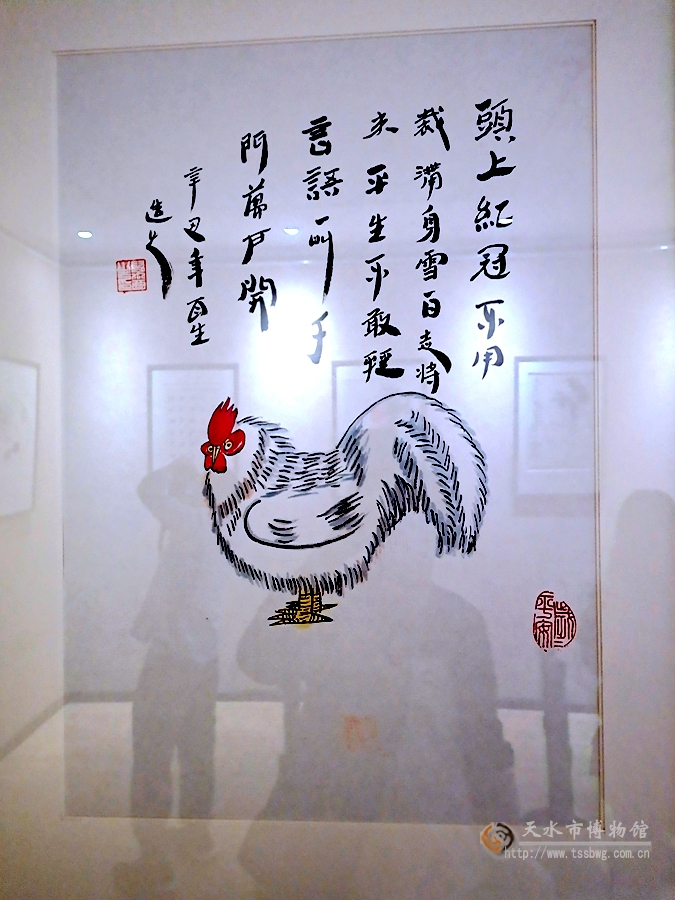 頭上紅冠不用
裁滿身雪白走將
来平生不敢輕
言語一叫千
門萬戶開
辛丑年
造
歲歲平安
天水市博物馆
http://www.tssbwg.com.cn